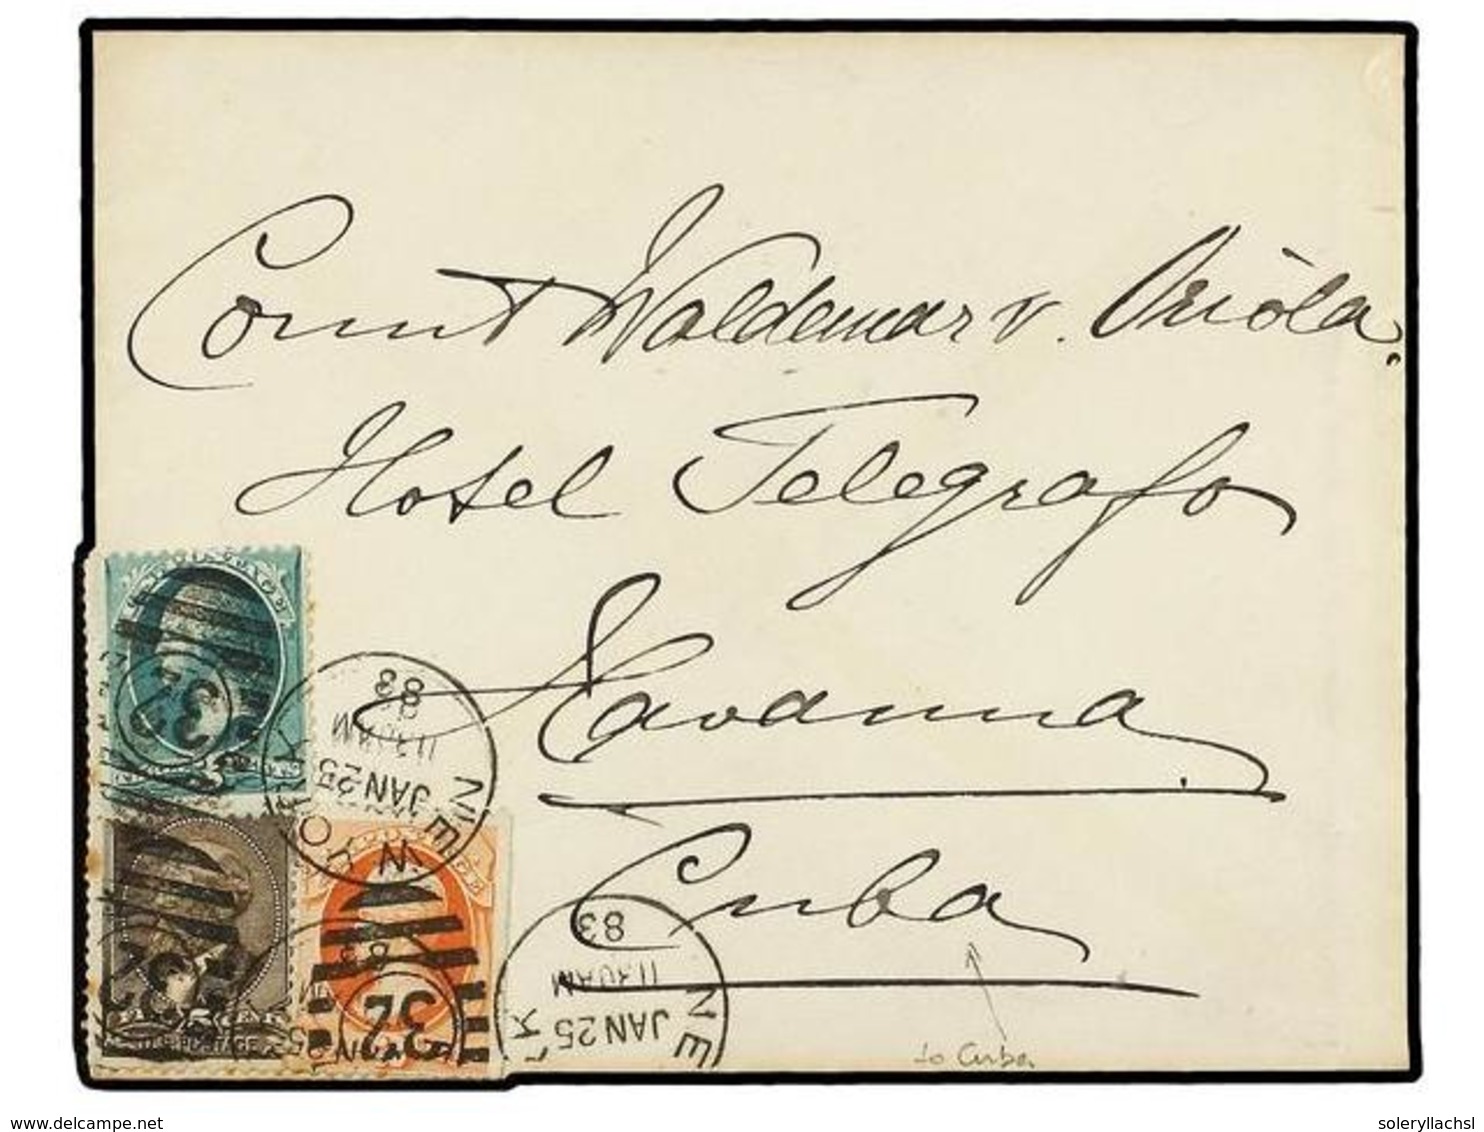 Count Waldemar v. Oriola.
Hotel Telegrafo
Havanna
Cuba
to Cuba
NEW YORK
JAN 25
11 30 AM
83
32
NEW YORK
JAN 25
11 30 AM
83
32
U.S. POSTAGE
delcampe.net
soleryllachsl